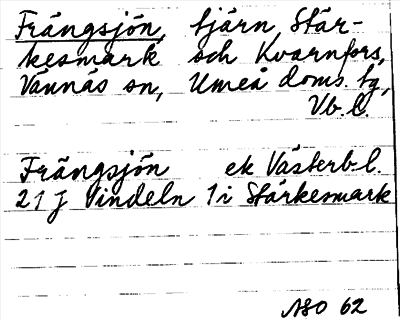 Frängsjön, tjärn, Stär-
kesmark och Kvarnfors,
Vännäs sn, Umeå doms. tg,
Vb. l.
Frängsjön ek Västerb. l.
21 J Vindeln 1 i Stärkesmark
NSO 62